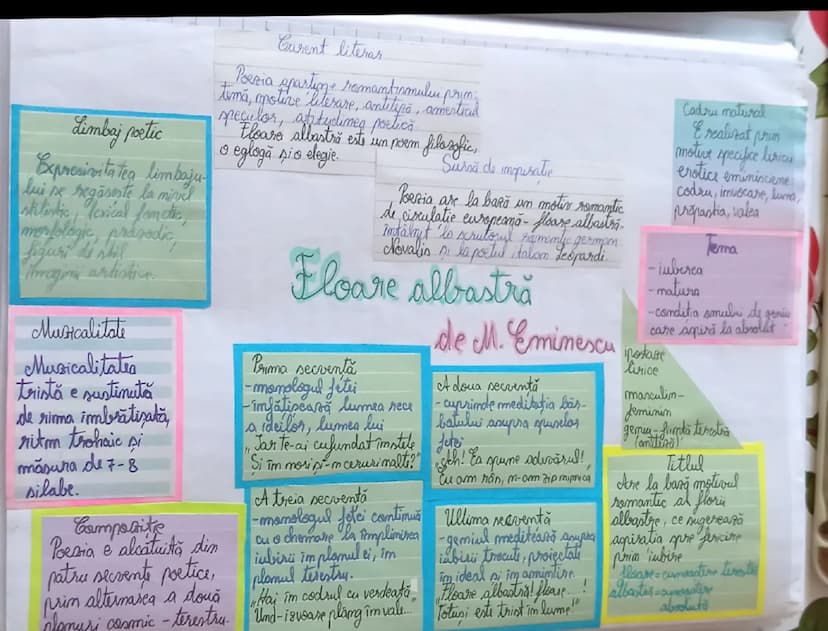 Curent literar
Poezia aparține romantismului prin:
temă, motive literare, antiteză, amestecul
speciilor, atitudinea poetică
Floare albastră este un poem filozofic,
o eglogă și o elegie.
Sursă de inspirație
Poezia are la bază un motiv romantic
de circulație europeană - floare albastră -
întâlnit la scriitorul romantic german
Novalis și la poetul italian Leopardi.
Cadru natural
E realizat prin
motive specifice liricii
erotice eminesciene:
codru, izvoare, luna,
prăpastia, valea
Limbaj poetic
Expresivitatea limbaju-
lui se regăsește la nivel
stilistic, lexical fonetic,
morfologic, prozodic,
figuri de stil
imagini artistice.
Tema
- iubirea
- natura
- condiția omului de geniu
care aspiră la absolut
Floare albastră
de M. Eminescu
Muzicalitate
Muzicalitatea
tristă e susținută
de rima îmbrățișată,
ritm trohaic și
măsura de 7-8
silabe.
Ipostaze
lirice
masculin-
feminin
geniu - ființă terestră
(antiteză)
Prima secvență
- monologul fetei
- înfățișează lumea rece
a ideilor, lumea lui
„Iar te-ai cufundat în stele
Și în nori și-n ceruri nalte?"
A doua secvență
- cuprinde meditația băr-
batului asupra spuselor
fetei
„Ah! Ea spune adevărul!
Eu am râs, n-am zis nimica
Titlul
Are la bază motivul
romantic al florii
albastre, ce sugerează
aspirația spre fericire
prin iubire
floare = cunoaștere terestră
albastră =
absolută
Compoziție
Poezia e alcătuită din
patru secvențe poetice,
prin alternarea a două
planuri cosmic - terestru.
A treia secvență
- monologul fetei continuă
cu o chemare la împlinirea
iubirii în planul ei, în
planul terestru.
„Hai în codrul cu verdeață,
Und-izvoare plâng în vale...
Ultima secvență
- geniul meditează asupra
iubirii trecute, proiectate
în ideal și în amintire.
„Floare albastră! floare...!
Totuși este trist în lume!"